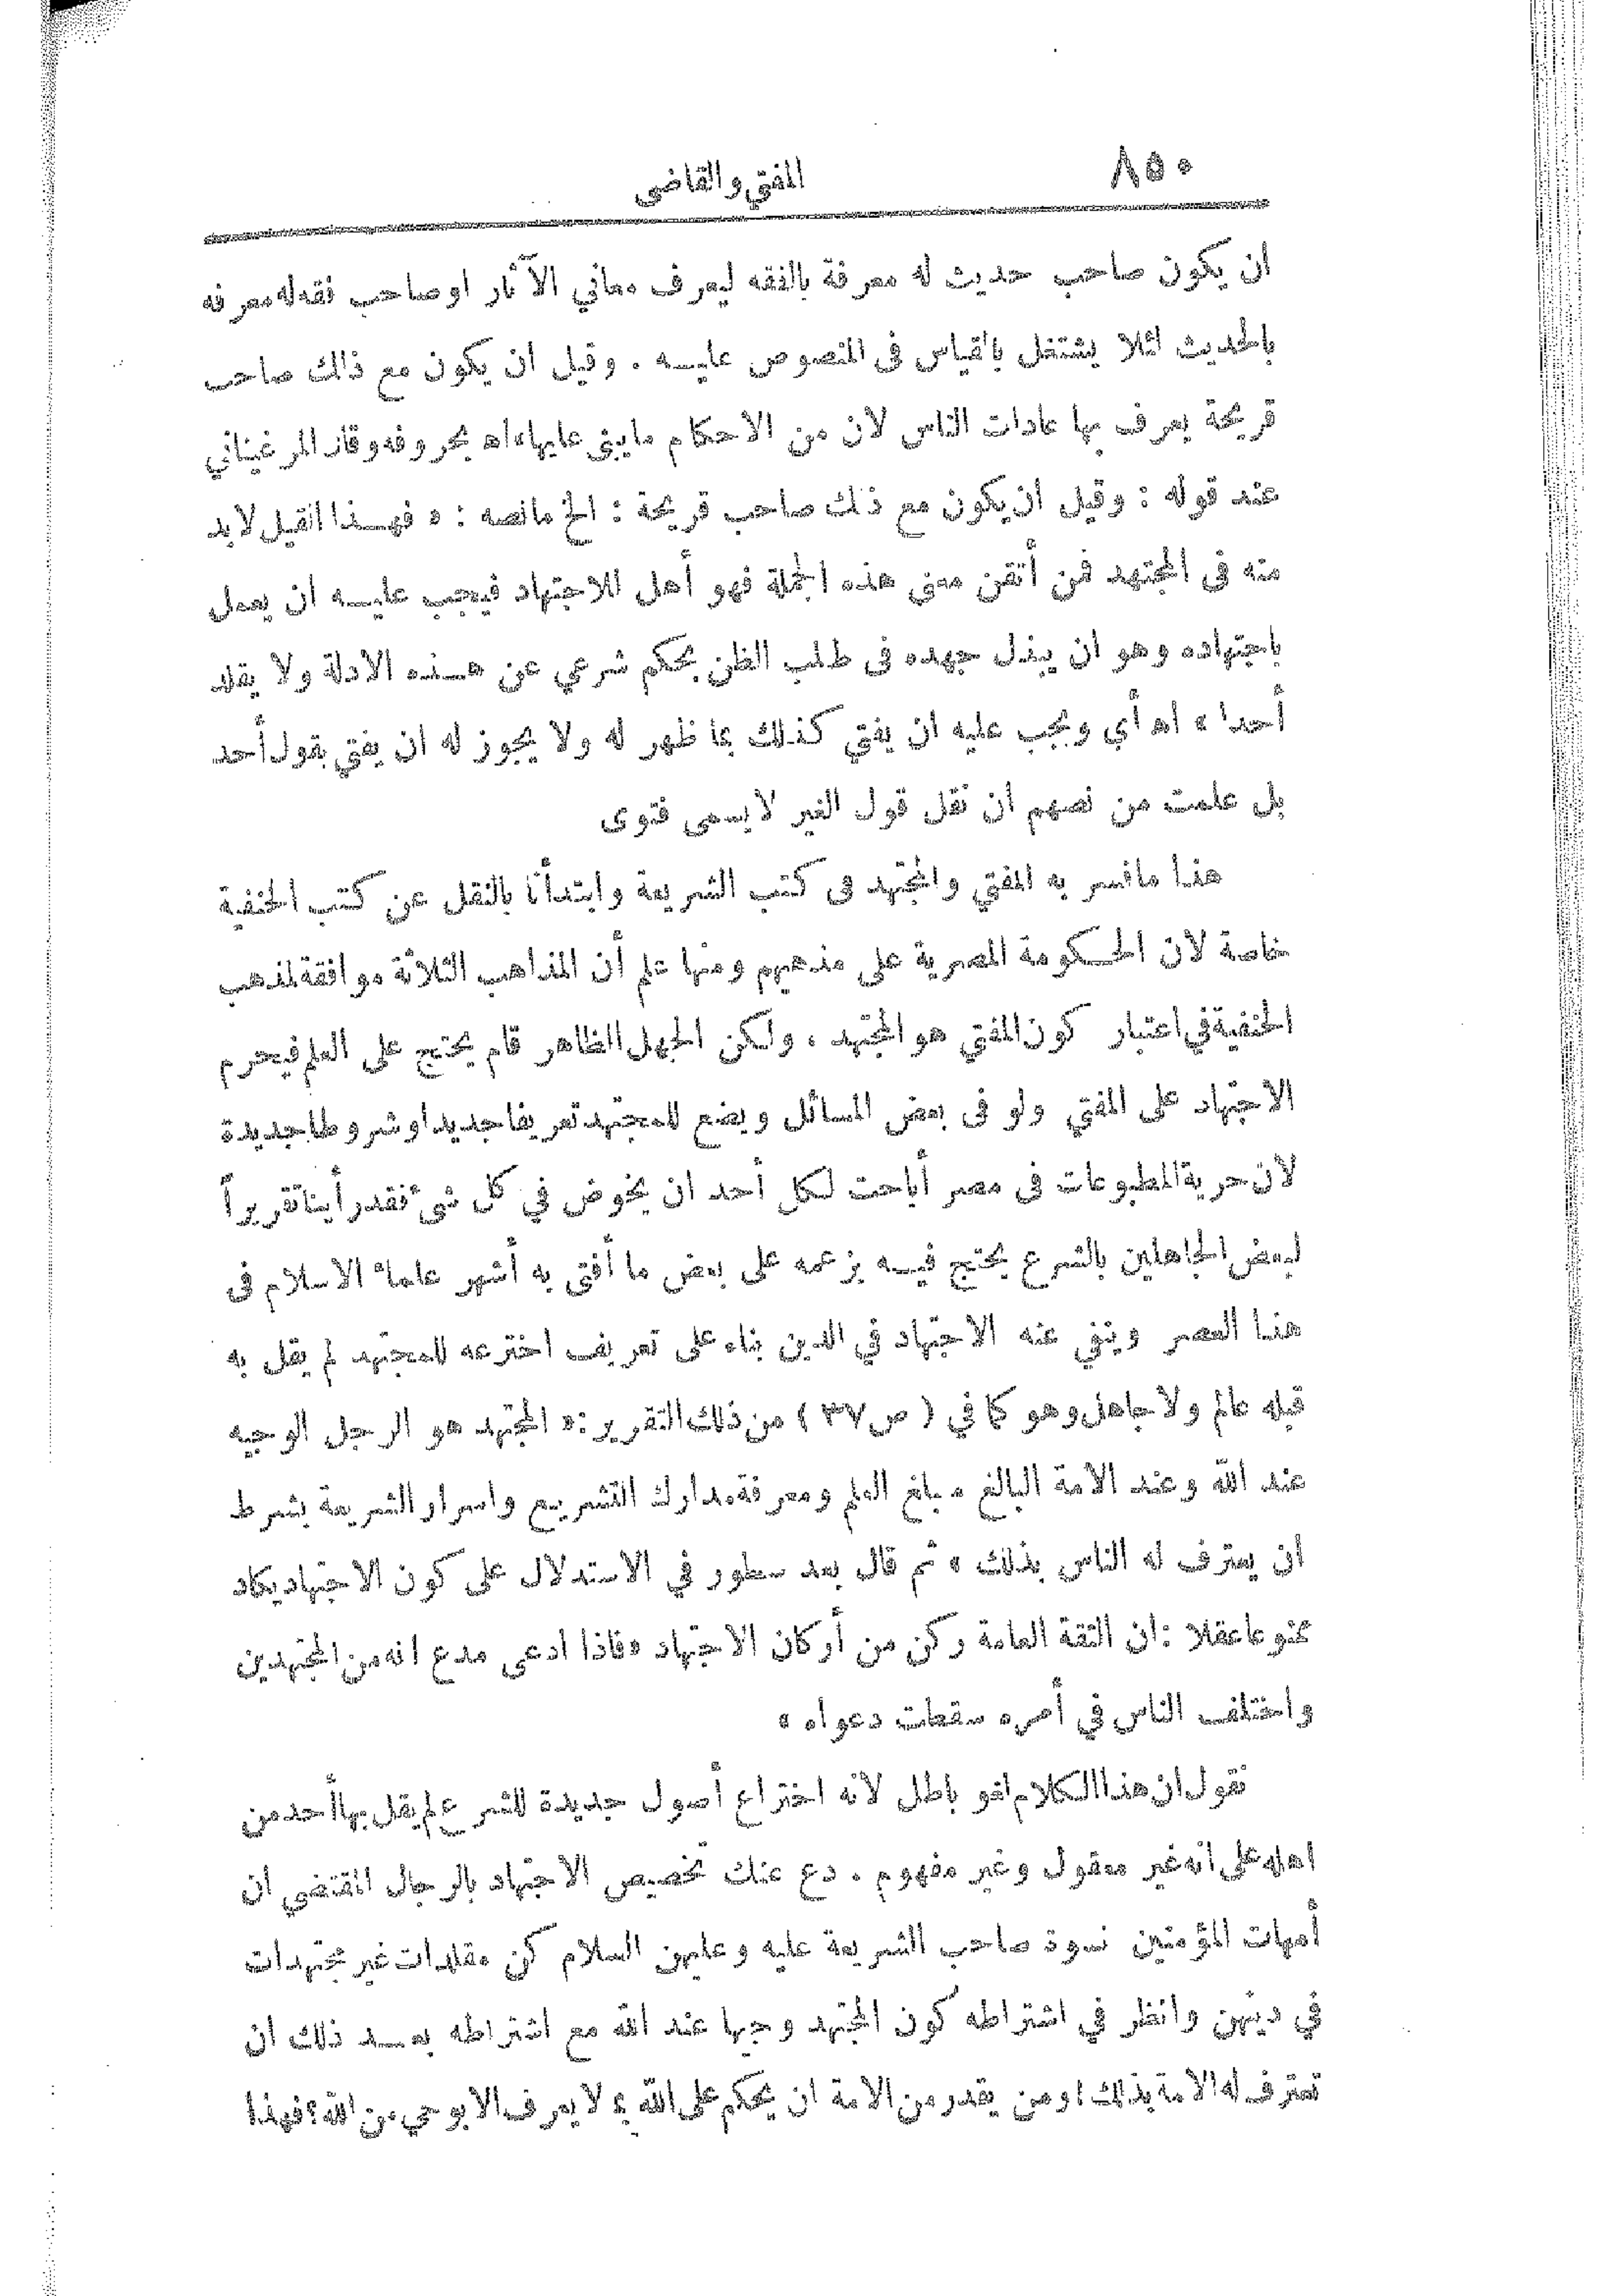 ٨٥٠ المفتي والقاضي
ان يكون صاحب حديث له معرفة بالفقه ليعرف معاني الآثار او صاحب فقه له معرفه
بالحديث لئلا يشتغل بالقياس فى المنصوص عليـه . وقيل ان يكون مع ذلك صاحب
قريحة يعرف بها عادات الناس لان من الاحكام ما يبنى عليها» اه بحروفه وقال المرغيناني
عند قوله : وقيل ان يكون مع ذلك صاحب قريحة : الخ مانصه : « فهـذا القيل لابد
منه فى المجتهد فمن أتقن معنى هذه الجملة فهو أهل للاجتهاد فيجب عليـه ان يعمل
باجتهاده وهو ان يبذل جهده فى طلب الظن بحكم شرعي عن هـذه الادلة ولا يقلد
أحدا » اه أي ويجب عليه ان يفتي كذلك بما ظهر له ولا يجوز له ان يفتي بقول أحد
بل علمت من نصهم ان نقل قول الغير لا يسمى فتوى
هذا مافسر به المفتي والمجتهد فى كتب الشريعة وابتدأنا بالنقل عن كتب الحنفية
خاصة لان الحكومة المصرية على مذهبهم ومنها علم أن المذاهب الثلاثة موافقة لمذهب
الحنفية في اعتبار كون المفتي هو المجتهد ، ولكن الجهل الظاهر قام يحتج على العلم فيحرم
الاجتهاد على المفتي ولو فى بعض المسائل ويضع للمجتهد تعريفا جديدا وشروطا جديدة
لان حرية المطبوعات فى مصر أباحت لكل أحد ان يخوض في كل شىء فقد رأينا تقريراً
لبعض الجاهلين بالشرع يحتج فيـه بزعمه على بعض ما أفتى به أشهر علماء الاسلام فى
هذا العصر وينفي عنه الاجتهاد في الدين بناء على تعريف اخترعه للمجتهد لم يقل به
قبله عالم ولا جاهل وهو كما في ( ص ٣٧ ) من ذلك التقرير : « المجتهد هو الرجل الوجيه
عند الله وعند الامة البالغ مبلغ العلم ومعرفة مدارك التشريع واسرار الشريعة بشرط
ان يعترف له الناس بذلك » ثم قال بعد سطور في الاستدلال على كون الاجتهاد يكاد
ممنوعا عقلا : ان الثقة العامة ركن من أركان الاجتهاد «فاذا ادعى مدع انه من المجتهدين
واختلف الناس في أمره سقطت دعواه »
نقول ان هذا الكلام لغو باطل لأنه اختراع أصول جديدة للشرع لم يقل بها أحد من
اهله على انه غير معقول وغير مفهوم . دع عنك تخصيص الاجتهاد بالرجال المقتضي ان
أمهات المؤمنين نسوة صاحب الشريعة عليه وعليهن السلام كن مقلدات غير مجتهدات
في دينهن وانظر في اشتراطه كون المجتهد وجيها عند الله مع اشتراطه بعـد ذلك ان
تعترف له الامة بذلك ! ومن يقدر من الامة ان يحكم على الله بما لا يعرف الا بوحي من الله ؟ فهذا